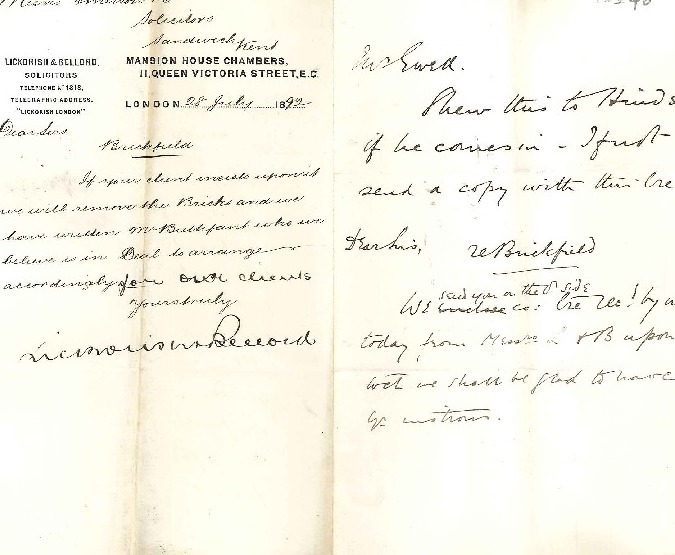 Solicitors
Sandwich Kent
LICKORISH & BELLORD,
SOLICITORS
TELEPHONE No 1818,
TELEGRAPHIC ADDRESS,
"LICKORISH LONDON"
MANSION HOUSE CHAMBERS,
11, QUEEN VICTORIA STREET, E.C.
LONDON 28 July 1892
Dear Sirs
Brickfield
If your client insists upon it
we will remove the Bricks and we
have written Mr Buttifant who we
believe is in Deal to arrange
accordingly for our clients
Yours truly
Lickorish & Bellord
Shew this to Hinds
if he comes in - If not
send a copy with this
Dear Sirs,
re Brickfield
We send you on the other side
enclose co: by
today from Messrs L & B upon
wch we shall be glad to have
yr instrons.